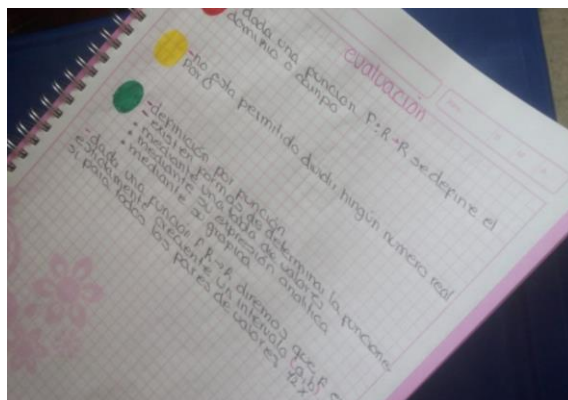 evaluación
dada una función F: R→R se define el
dominio o campo
-no esta permitido dividir ningún numero real
por 0
-definición por función
-existen formas de determinar la funcione
• mediante una tabla de valores
• mediante su expresión analitica
• mediante su grafica
-dada una función F R→R diremos que F e
frecuente un intervalo (a,b)
si para todos los pares de valores